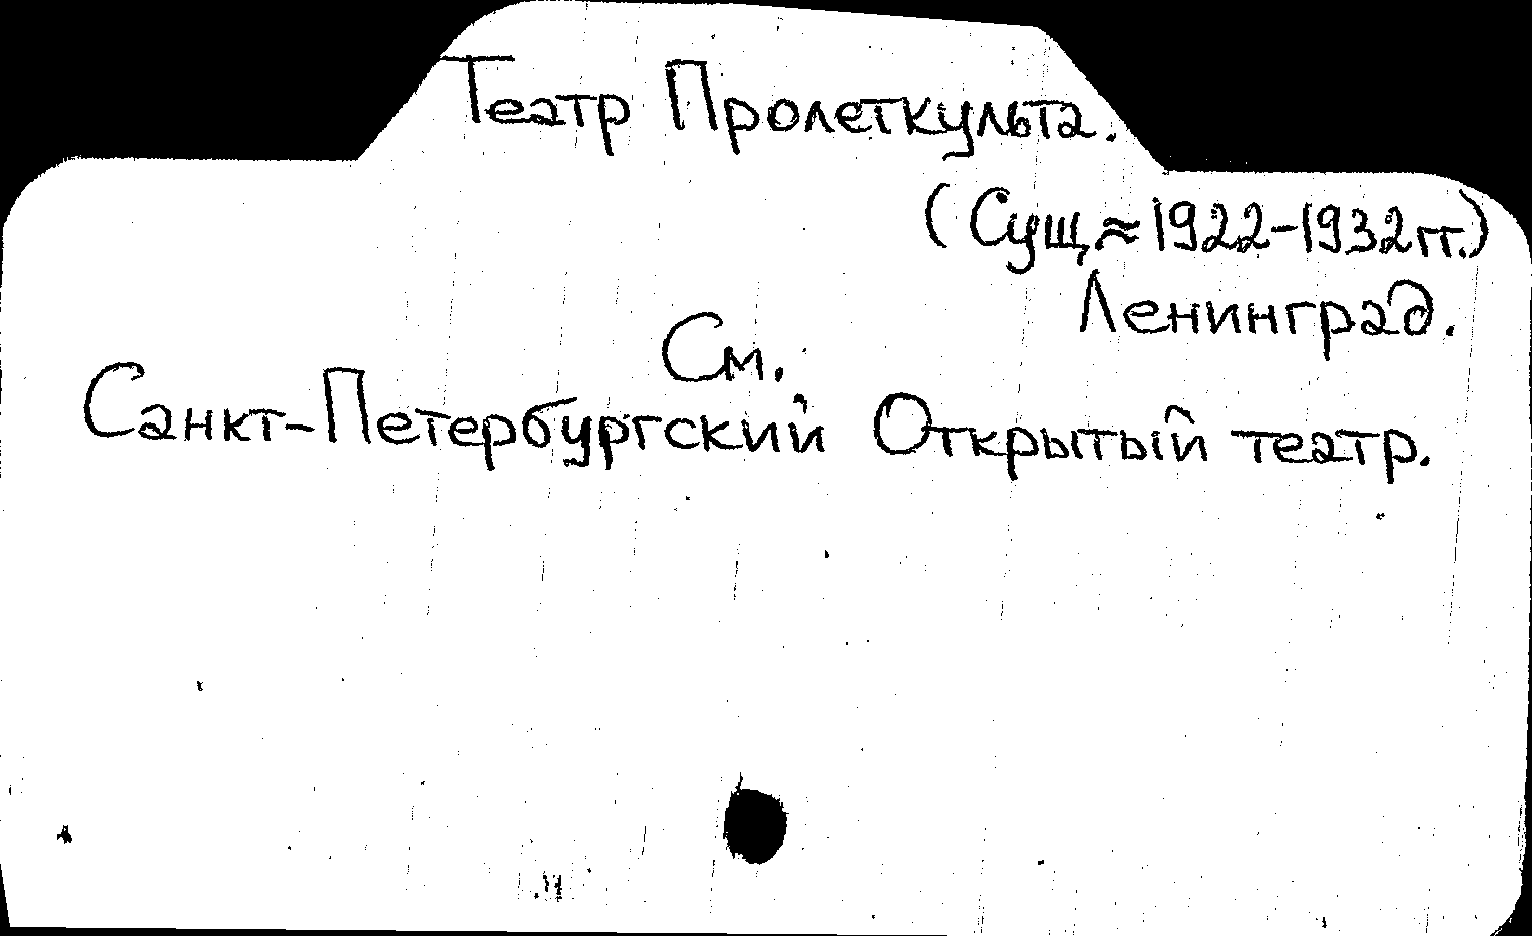 Театр Пролеткульта.
(Сущ. ≈ 1922-1932 гг.)
Ленинград.
См.
Санкт-Петербургский Открытый театр.